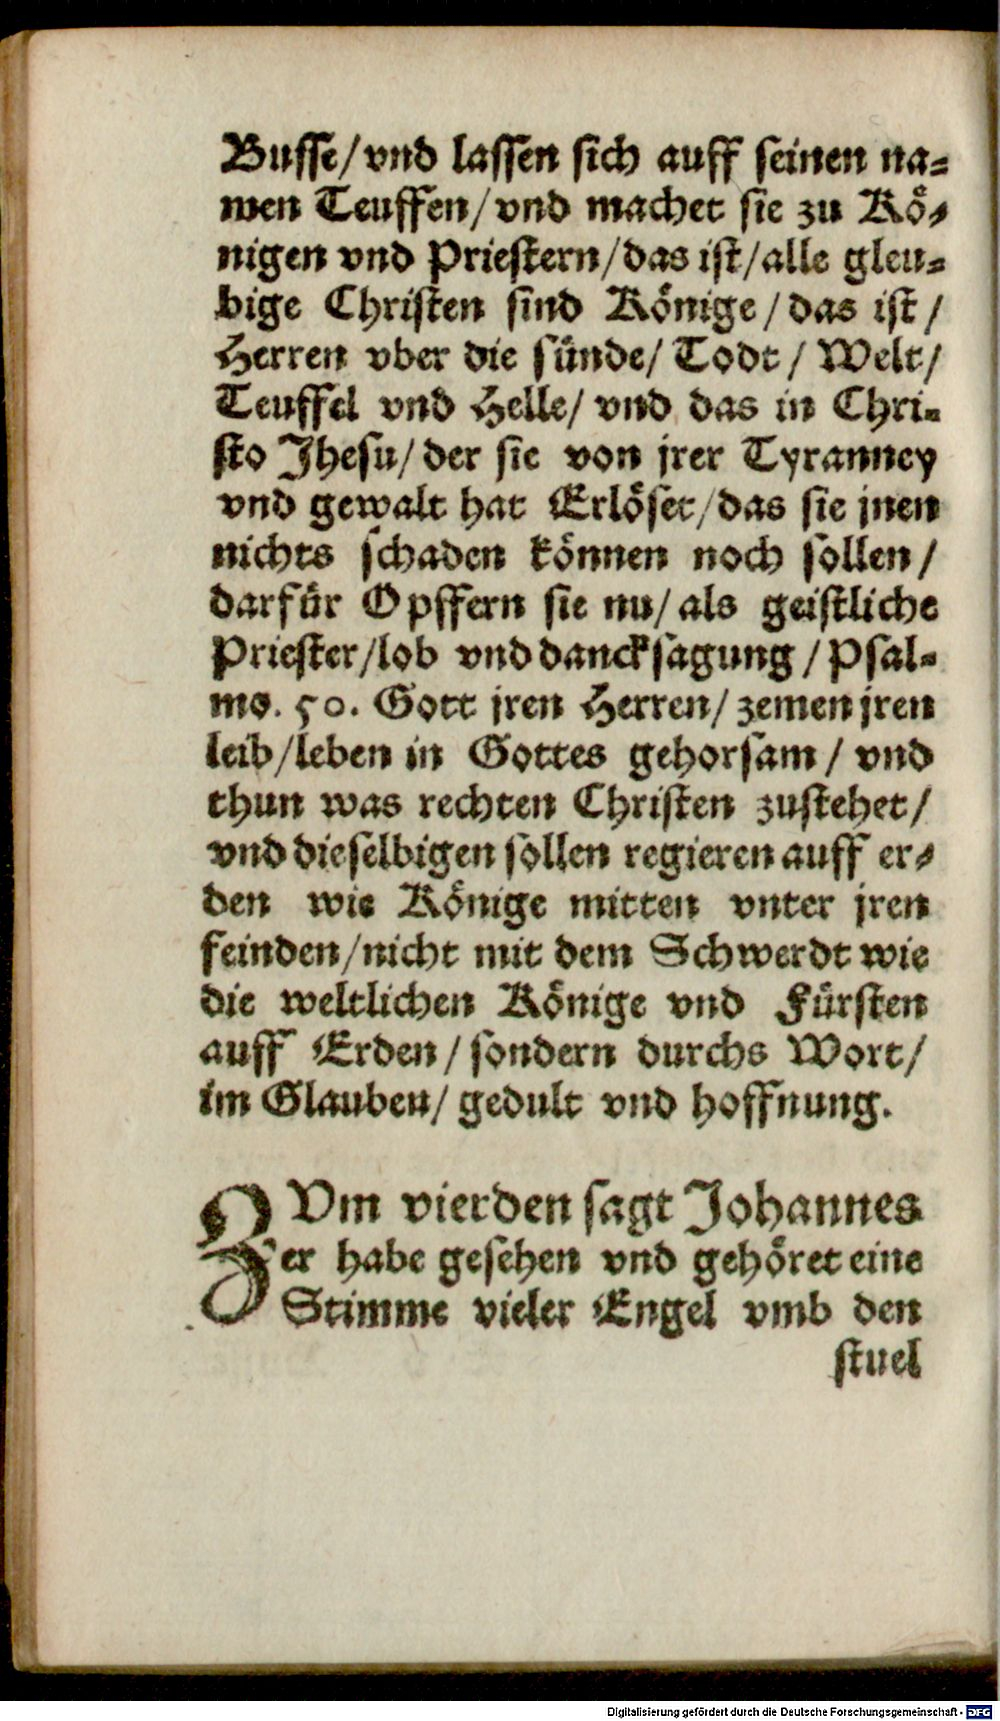 Busse/vnd lassen sich auff seinen na-
men Teuffen/vnd machet sie zu Kö-
nigen vnd Priestern/das ist/alle gleu-
bige Christen sind Könige/das ist/
Herren vber die sünde/Todt/Welt/
Teuffel vnd Helle/vnd das in Chri-
sto Jhesu/der sie von jrer Tyranney
vnd gewalt hat Erlöset/das sie jnen
nichts schaden können noch sollen/
darfür Opffern sie nu/als geistliche
Priester/lob vnd dancksagung/Psal-
mo. 50. Gott jren Herren/zemen jren
leib/leben in Gottes gehorsam/vnd
thun was rechten Christen zustehet/
vnd dieselbigen sollen regieren auff er-
den wie Könige mitten vnter jren
feinden/nicht mit dem Schwerdt wie
die weltlichen Könige vnd Fürsten
auff Erden/sondern durchs Wort/
im Glauben/gedult vnd hoffnung.
ZVm vierden sagt Johannes
er habe gesehen vnd gehöret eine
Stimme vieler Engel vmb den
stuel
Digitalisierung gefördert durch die Deutsche Forschungsgemeinschaft - DFG